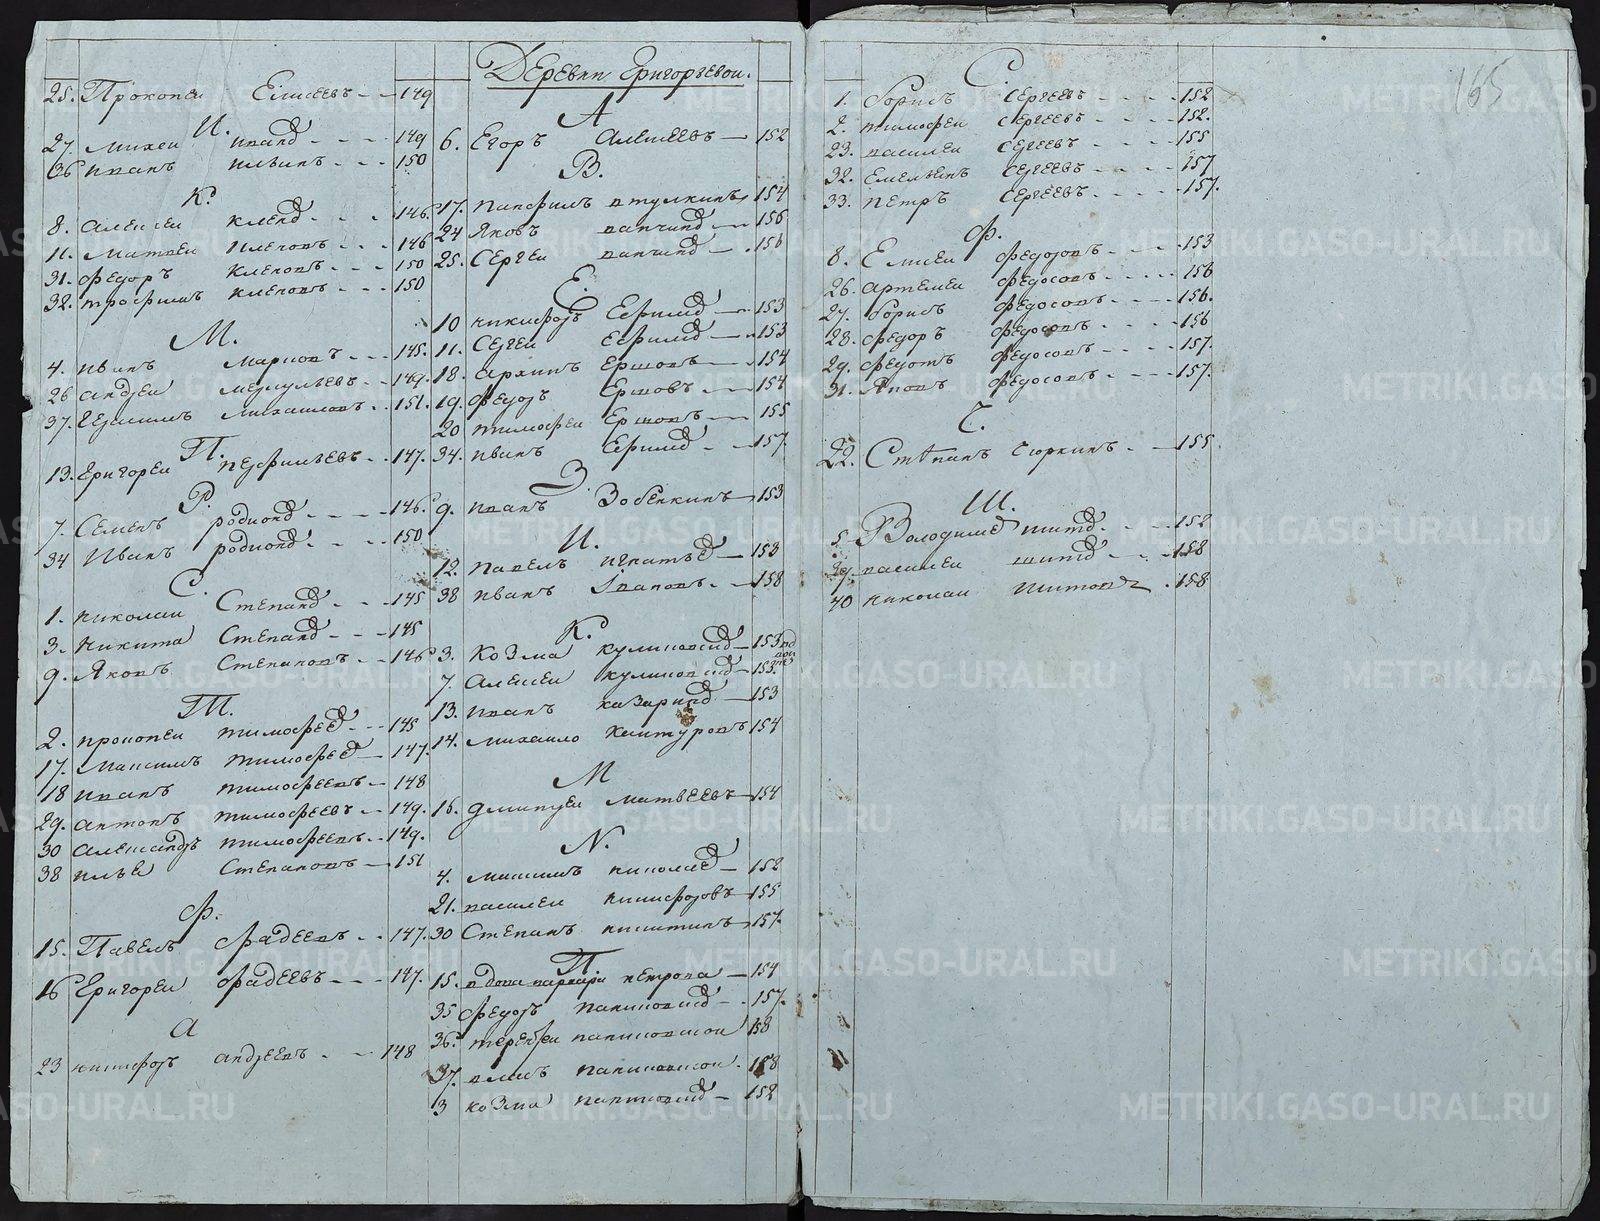 25. Прокопеи Елисеевъ 149
И.
27. михеи иванов 149
36 иванъ ильинъ 150
К.
8. алексеи кленов 146.
11. матвеи кленовъ 146
31. федоръ кленовъ 150
32. трофимъ кленовъ 150
М.
4. иванъ марковъ 145.
26 андреи меркульевъ 149.
37. герасимъ михаиловъ 151.
П.
13. Григореи перфильевъ 147.
Р.
7. Семенъ родионов 146.
34 Иванъ родионов 150
С.
1. николаи Степанов 145
3. никита Степанов 145
9. Яковъ Степановъ 146
Т.
2. прокопеи тимофеев 145
17. максимъ тимофеев 147.
18 иванъ тимофеевъ 148
29. антонъ тимофеевъ 149.
30 александръ тимофеевъ 149.
38 илья Степановъ 151
Ф.
15. Павелъ фадеевъ 147.
16 Григореи фадеевъ 147.
А
23 никифоръ андреевъ 148
Деревни Григоргевои.
А
6. Егоръ Алексеевъ 152
В.
17. панфилъ втулкинъ 154
24 Яковъ 156
25. Сергеи 156
Е.
10 никифоръ Ефимов 153
11. Сергеи Ефимов 153
18. архипъ Ершовъ 154
19. федоръ Ершовъ 154
20 тимофеи Ершовъ 155
34. иванъ Ефимов 157.
З
9. иванъ Зобенкинъ 153
И.
12. павелъ игнатьев 153
38 иванъ Iвановъ 158
К.
3. козма куликовских 153
7. алексеи куликовских 153.
13. иванъ казаринов 153
14. михаило кайгуровъ 154
М
16. дмитреи матвеевъ 154
N.
4. максимъ николаев 152
21. василеи никифоровъ 155
30 Степанъ никитинъ 157.
П
15. вдова петрова 154
35 федоръ 157.
36. терентеи 158
37. 158
3 козма 152
165
С.
1. борисъ Сергеевъ 152
2. тимофеи Сергеевъ 152.
23. василеи Сергеевъ 155
32. Емельянъ Сергеевъ 157
33. петръ Сергеевъ 157.
Ф.
8. Елисеи федоровъ 153
26. артемеи федосовъ 156
27. борисъ федосовъ 156.
28. федоръ федосовъ 156
29. федотъ федосовъ 157.
31. Яковъ федосовъ 157.
Ч.
22. Степанъ чюркинъ 155
Ш.
5. Володимер шитов 152
василеи шитов 158
40 николаи шитовъ 158
METRIKI.GASO-URAL.RU